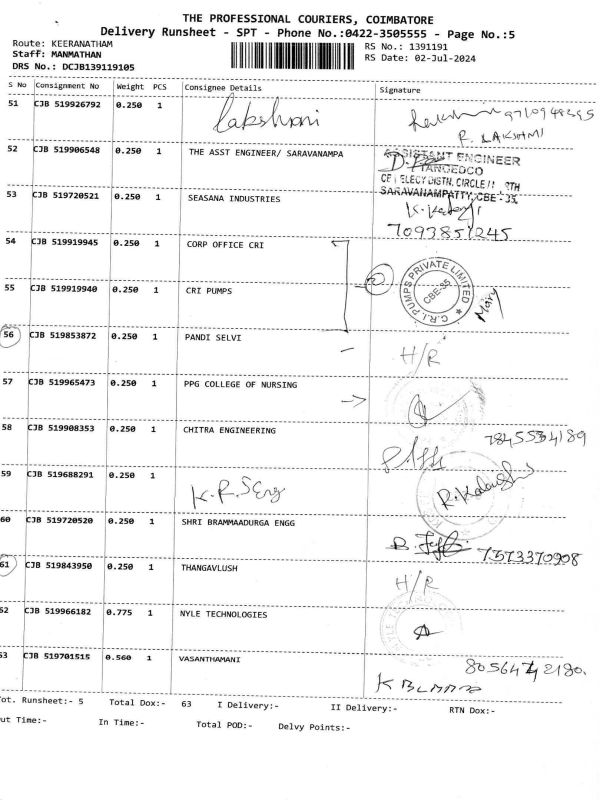 THE PROFESSIONAL COURIERS, COIMBATORE
Delivery Runsheet - SPT - Phone No.:0422-3505555 - Page No.:5
Route: KEERANATHAM
Staff: MANMATHAN
DRS No.: DCJB139119105
RS No.: 1391191
RS Date: 02-Jul-2024
S No Consignment No Weight PCS Consignee Details Signature
51 CJB 519926792 0.250 1 Lakshmi 9710948595
R. LAKSHMI
52 CJB 519906548 0.250 1 THE ASST ENGINEER/ SARAVANAMPA
ASSISTANT ENGINEER
TANGEDCO
SARAVANAMPATTY, CBE - 35.
53 CJB 519720521 0.250 1 SEASANA INDUSTRIES
7093851245
54 CJB 519919945 0.250 1 CORP OFFICE CRI
55 CJB 519919940 0.250 1 CRI PUMPS
2
C.R.I. PUMPS PRIVATE LIMITED
CBE-35
Mary
56 CJB 519853872 0.250 1 PANDI SELVI H/R
57 CJB 519965473 0.250 1 PPG COLLEGE OF NURSING
58 CJB 519908353 0.250 1 CHITRA ENGINEERING 7845534189
59 CJB 519688291 0.250 1 K.R.S Eng
60 CJB 519720520 0.250 1 SHRI BRAMMAADURGA ENGG 7373370908
61 CJB 519843950 0.250 1 THANGAVLUSH H/R
62 CJB 519966182 0.775 1 NYLE TECHNOLOGIES
63 CJB 519701515 0.560 1 VASANTHAMANI
Tot. Runsheet:- 5 Total Dox:- 63 I Delivery:- II Delivery:- RTN Dox:-
Out Time:- In Time:- Total POD:- Delvy Points:-